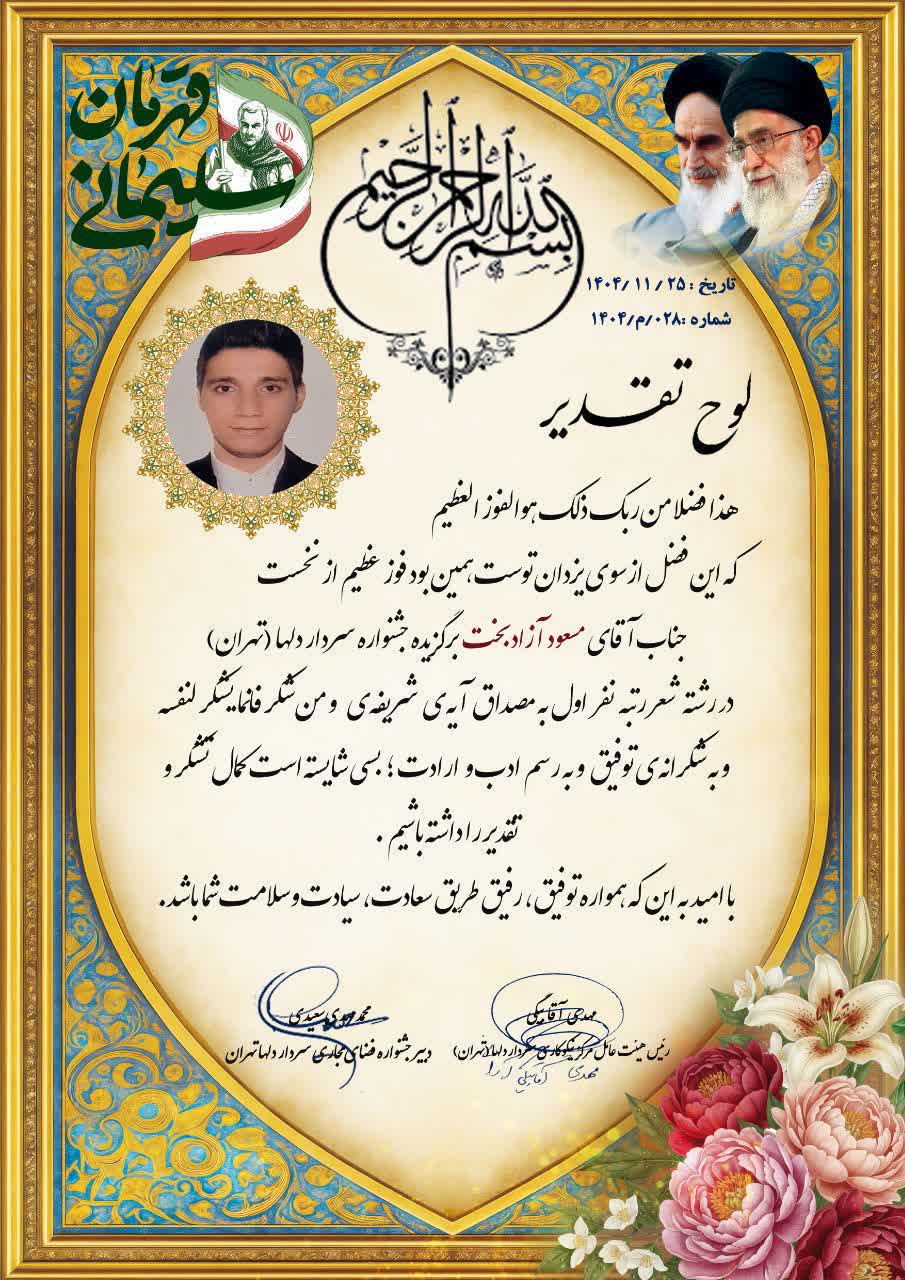 قهرمان
سلیمانی
بسم الله الرحمن الرحیم
تاریخ : ۲۵ / ۱۱ /۱۴۰۴
شماره :۰۲۸/م/۱۴۰۴
لوح تقدیر
هذا فضلا من ربک ذلک هو الفوز العظیم
که این فضل از سوی یزدان توست همین بود فوز عظیم از نخست
جناب آقای مسعود آزادبخت برگزیده جشنواره سردار دلها (تهران)
در رشته شعر رتبه نفر اول به مصداق آیه‌ی شریفه‌ی و من شکر فانما یشکر لنفسه
و به شکرانه‌ی توفیق و به رسم ادب و ارادت ؛ بسی شایسته است کمال تشکر و
تقدیر را داشته باشیم .
با امید به این که همواره توفیق، رفیق طریق سعادت، سیادت و سلامت شما باشد.
مهدی آقابیگی
رئیس هیئت عامل مرکز نیکوکاری سردار دلها (تهران)
مهدی آقابیگی
محمدمهدی سعیدی
دبیر جشنواره فضای مجازی سردار دلها تهران